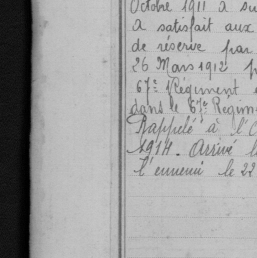 Octobre 1911 à su
A satisfait aux
de réserve par
26 Mars 1912 p
67e Régiment
dans le 67e Régime
Rappelé à l'
1914. Arrivé le
l'ennemi le 22